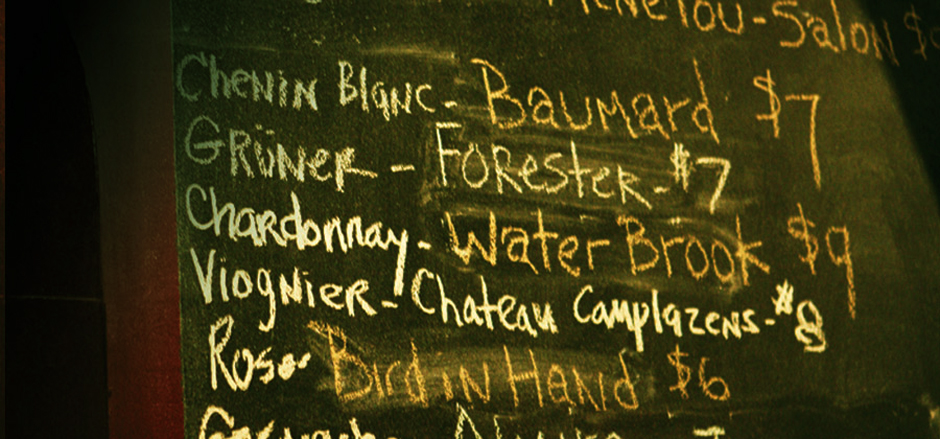 Menetou-Salon $
Chenin Blanc - Baumard $7
GRÜNER - FORESTER - $7
Chardonnay - Water Brook $9
Viognier - Chateau Camplazens - $8
Rose Bird in Hand $6